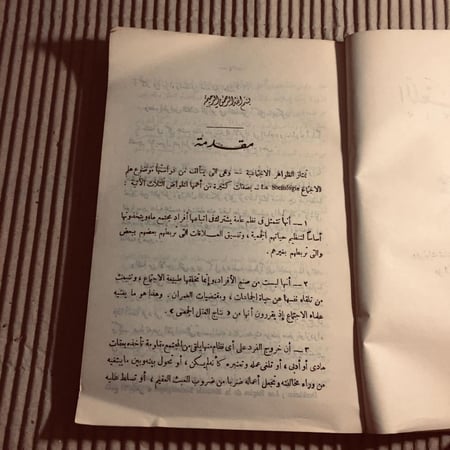 بسم الله الرحمن الرحيم
مقدمة
تمتاز الظواهر الاجتماعية — وهى التى يتألف من دراستها موضوع علم
الاجتماع La Sociologie — بصفات كثيرة من أهمها الخواص الثلاث الآتية :
١ — أنها تتمثل فى نظم عامة يشترك فى اتباعها أفراد مجتمع ما ويتخذونها
أساساً لتنظيم حياتهم الجمعية ، وتنسيق العلاقات التى تربطهم بعضهم ببعض
والتى تربطهم بغيرهم .
٢ — أنها ليست من صنع الأفراد وإنما تخلقها طبيعة الاجتماع ، وتنبعث
من تلقاء نفسها عن حياة الجماعات ، ومقتضيات العمران . وهذا هو ما يعنيه
علماء الاجتماع إذ يقررون أنها من « نتاج العقل الجمعى » .
٣ — أن خروج الفرد على أى نظام منها يلقى من المجتمع مقاومة تأخذه بعقاب
مادى أو أدبى ، أو تلغى عمله وتعتبره كأنه لم يكن ، أو تحول بينه وبين ما يبتغيه
من وراء مخالفته وتجعل أعماله ضربا من ضروب العبث العقيم ، أو تسلط عليه